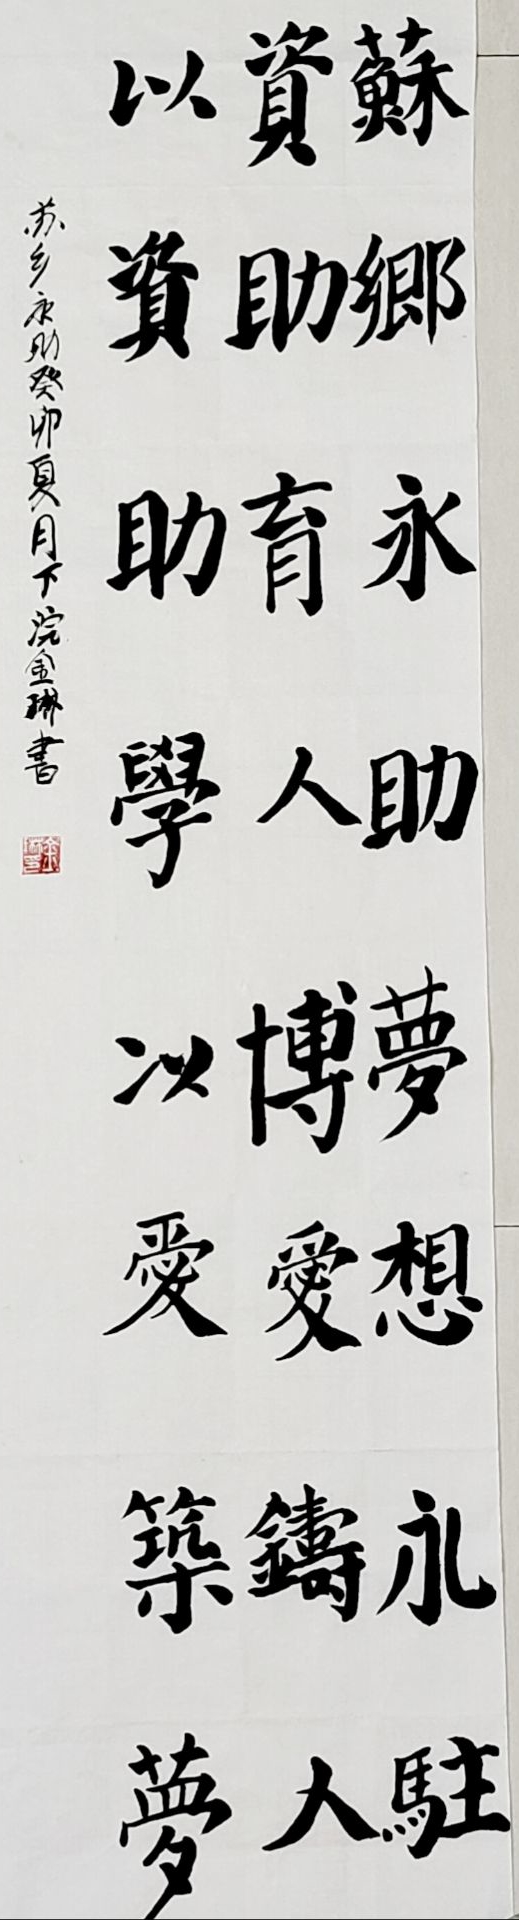 蘇鄉永助夢想永駐
資助育人博愛鑄人
以資助學以愛築夢
苏乡永助癸卯夏月下浣金琳書